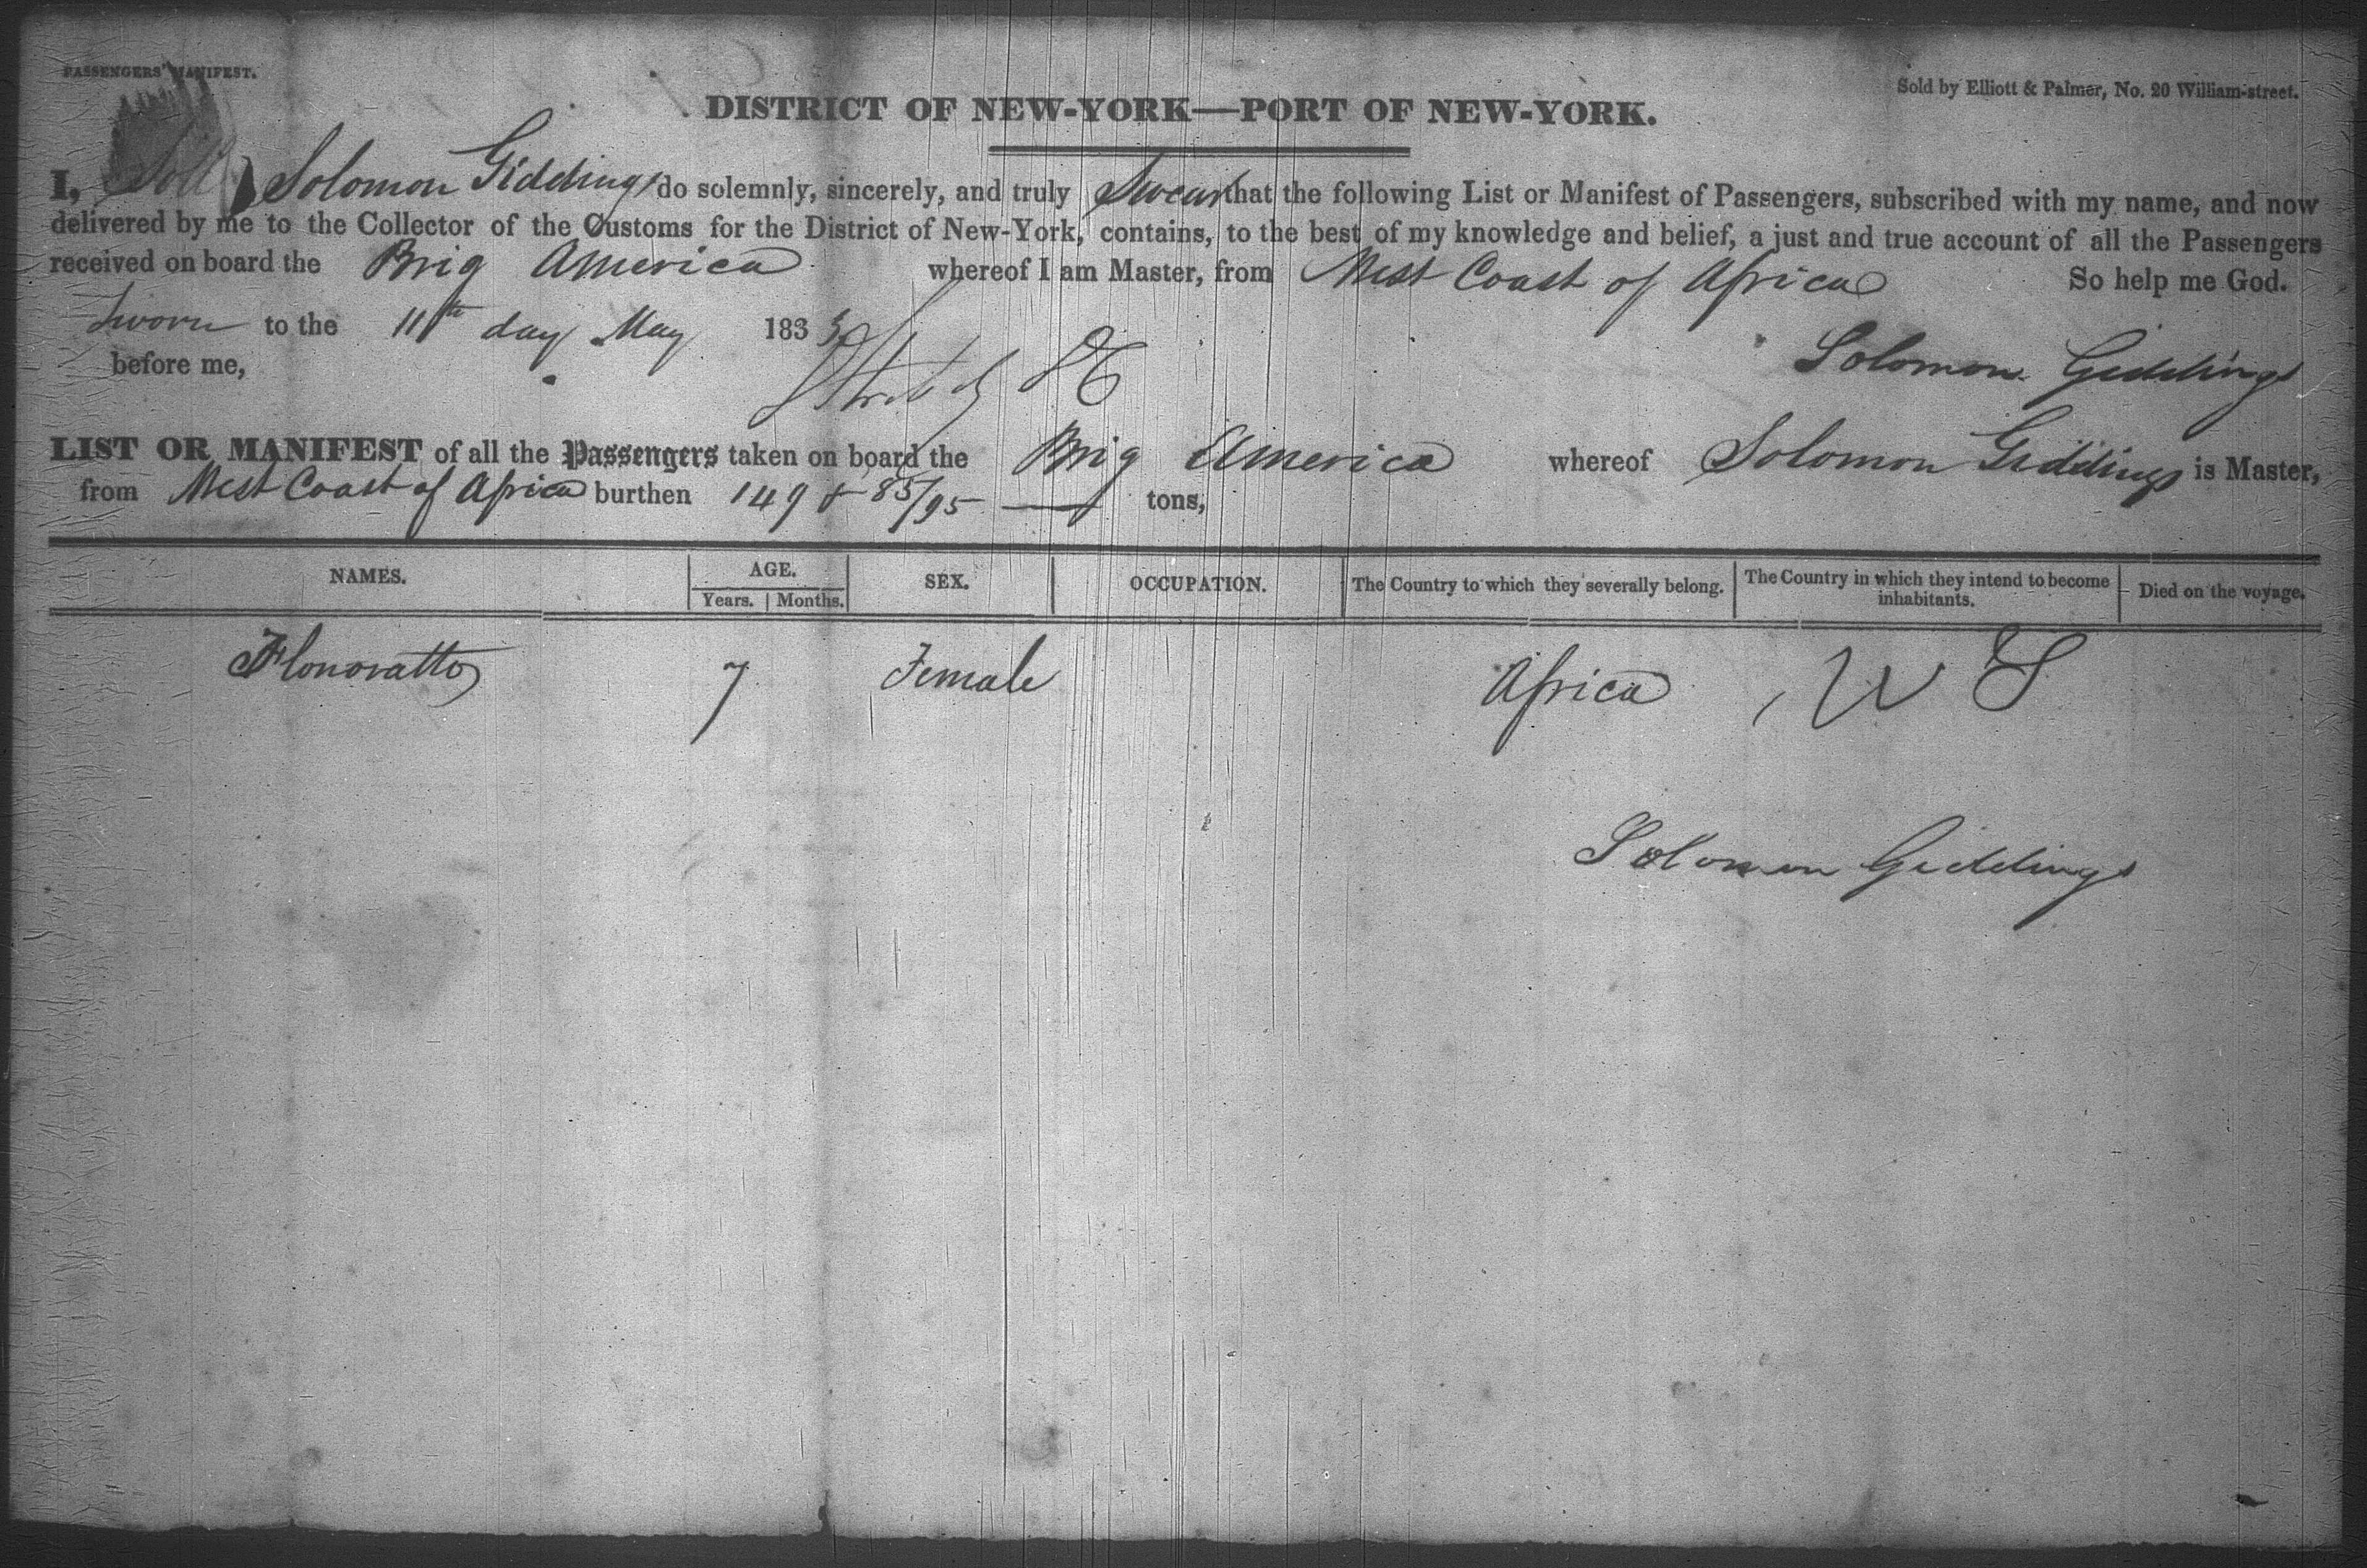 PASSENGERS' MANIFEST.
Sold by Elliott & Palmer, No. 20 William-street.
DISTRICT OF NEW-YORK—PORT OF NEW-YORK.
I, Solomon Giddings do solemnly, sincerely, and truly Swear that the following List or Manifest of Passengers, subscribed with my name, and now
delivered by me to the Collector of the Customs for the District of New-York, contains, to the best of my knowledge and belief, a just and true account of all the Passengers
received on board the Brig America whereof I am Master, from West Coast of Africa So help me God.
Sworn to the 11th day May 1833
before me,
Solomon Giddings
LIST OR MANIFEST of all the Passengers taken on board the Brig America whereof Solomon Giddings is Master,
from West Coast of Africa burthen 149 & 85/95 tons,
NAMES. AGE. Years. Months. SEX. OCCUPATION. The Country to which they severally belong. The Country in which they intend to become inhabitants. Died on the voyage.
7 Female Africa U S
Solomon Giddings